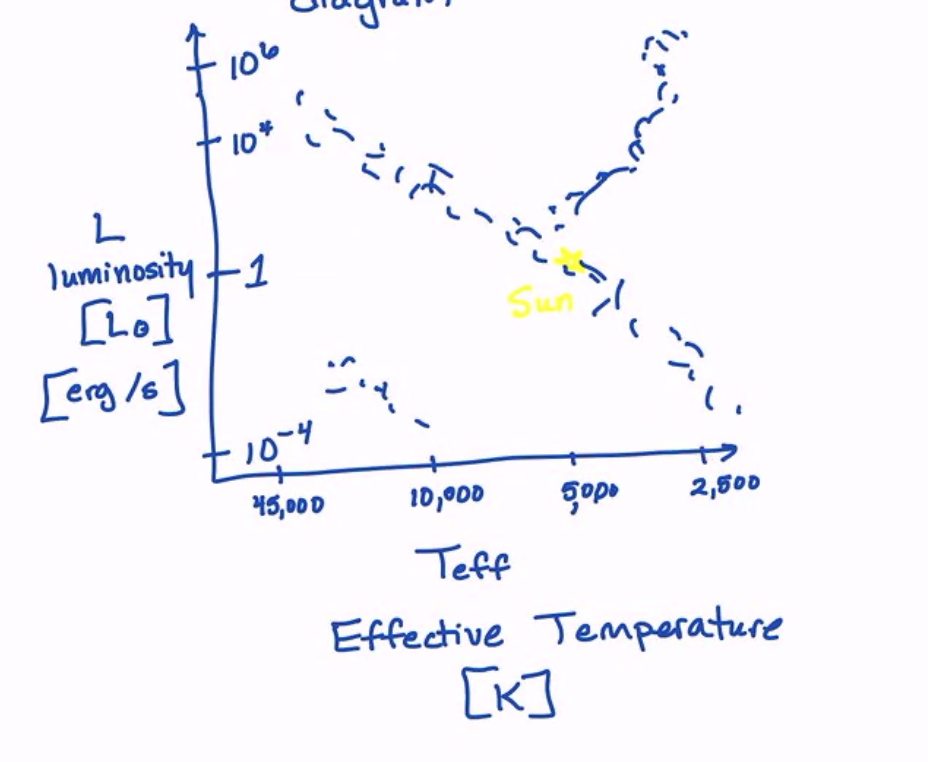 Diagram
10⁶
10⁴
L
luminosity
1
[L⊙]
[erg/s]
Sun
10⁻⁴
45,000
10,000
5,000
2,500
Teff
Effective Temperature
[K]